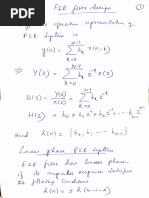 FIR filter design
①
the equation representation of
FIR system is
y(n) = Σ_{k=0}^{N-1} b_k x(n-k)
⇒ Y(z) = Σ_{k=0}^{N-1} b_k z^{-k} X(z)
H(z) = Y(z)/X(z) = Σ_{k=0}^{N-1} b_k z^{-k}
H(z) = b_0 + b_1 z^{-1} + b_2 z^{-2} ...
and h(n) = {b_0, b_1, ... b_{N-1}}
Linear phase FIR system
FIR filter has linear phase
if its impulse response satisfies
the following conditions
h(n) = ± h(N-1-n)